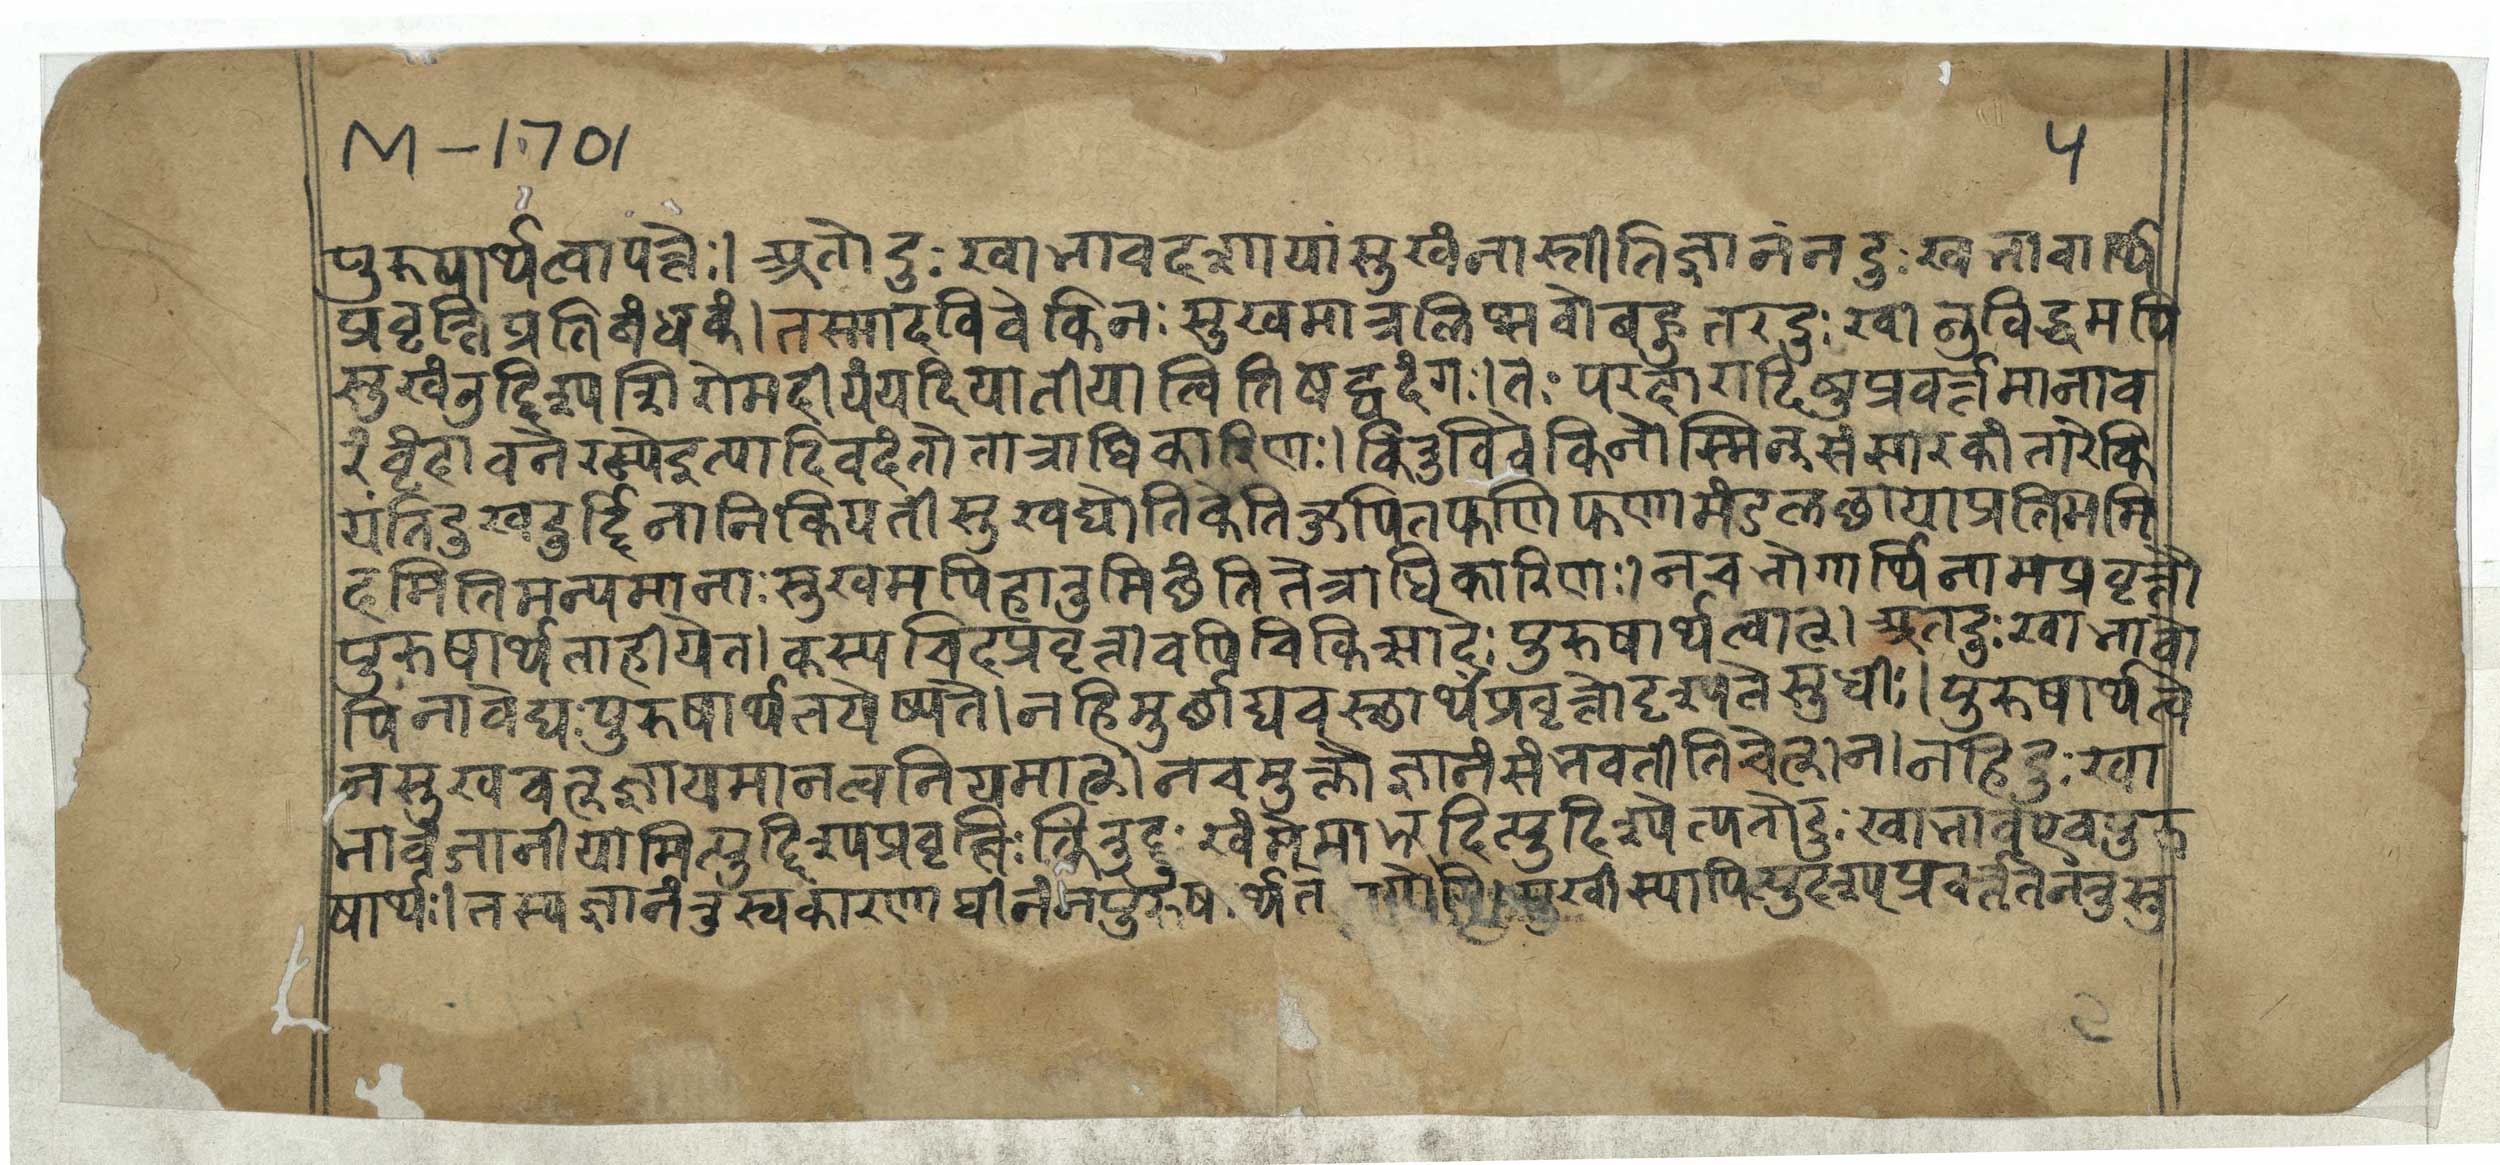 M-1701
५
पुरुषार्थत्वापत्तेः। अतो दुःखाभावदशायां सुखं नास्तीति ज्ञानं न दुःखभावार्थि
प्रवृत्तिप्रतिबंधकं। तस्मादविवेकिनः सुखमात्रलिप्सवो बहुतरदुःखानुविद्धमपि
सुखंनुद्दिश्य शिरोमदीयं यदि यातो यात्विति षद्वदंगः।तः परदारादिषु प्रवर्त्तमाना व
रं वृंदावने रम्येइत्यादि वदंतो तात्राधिकारिणः। किंतु विवेकिनोस्मिन् संसारकांतारे कि
यंति दुखदुर्द्दिनानि कियती सुखद्योतिकेति कुपितफणिफणामंडलछायाप्रतिममि
दमिति मन्यमानाः सुखमपि हातुमिछंति तेत्राधिकारिणः। न च भोगार्थिनामप्रवृत्तौ
पुरुषार्थता हीयेत। कस्यचिदप्रवृत्तावपि चिकित्सादेः पुरुषार्थत्वात्। अतदुःखाभावा
पि नावेद्यः पुरुषार्थतयेष्यते। न हि मुर्छाद्यवस्छार्थं प्रवृत्तो दृश्यते सुधीः। पुरुषार्थत्वे
न सुखवत् ज्ञायमानत्वनियमात्। न च मुक्तौ ज्ञानं संभवतीति चेत्। न। न हि दुःखा
भावं जानीयामित्युद्दिश्य प्रवृत्तिः किंतु दुःखं मे मा भूदित्युदिश्येत्यतो दुःखाभाव एव पुरु
षार्थः। तस्य ज्ञानं तु स्वकारणाधीनं न पुरुषार्थत सुखीस्यापित्युदश्य प्रवर्त्तते नतु सु
२